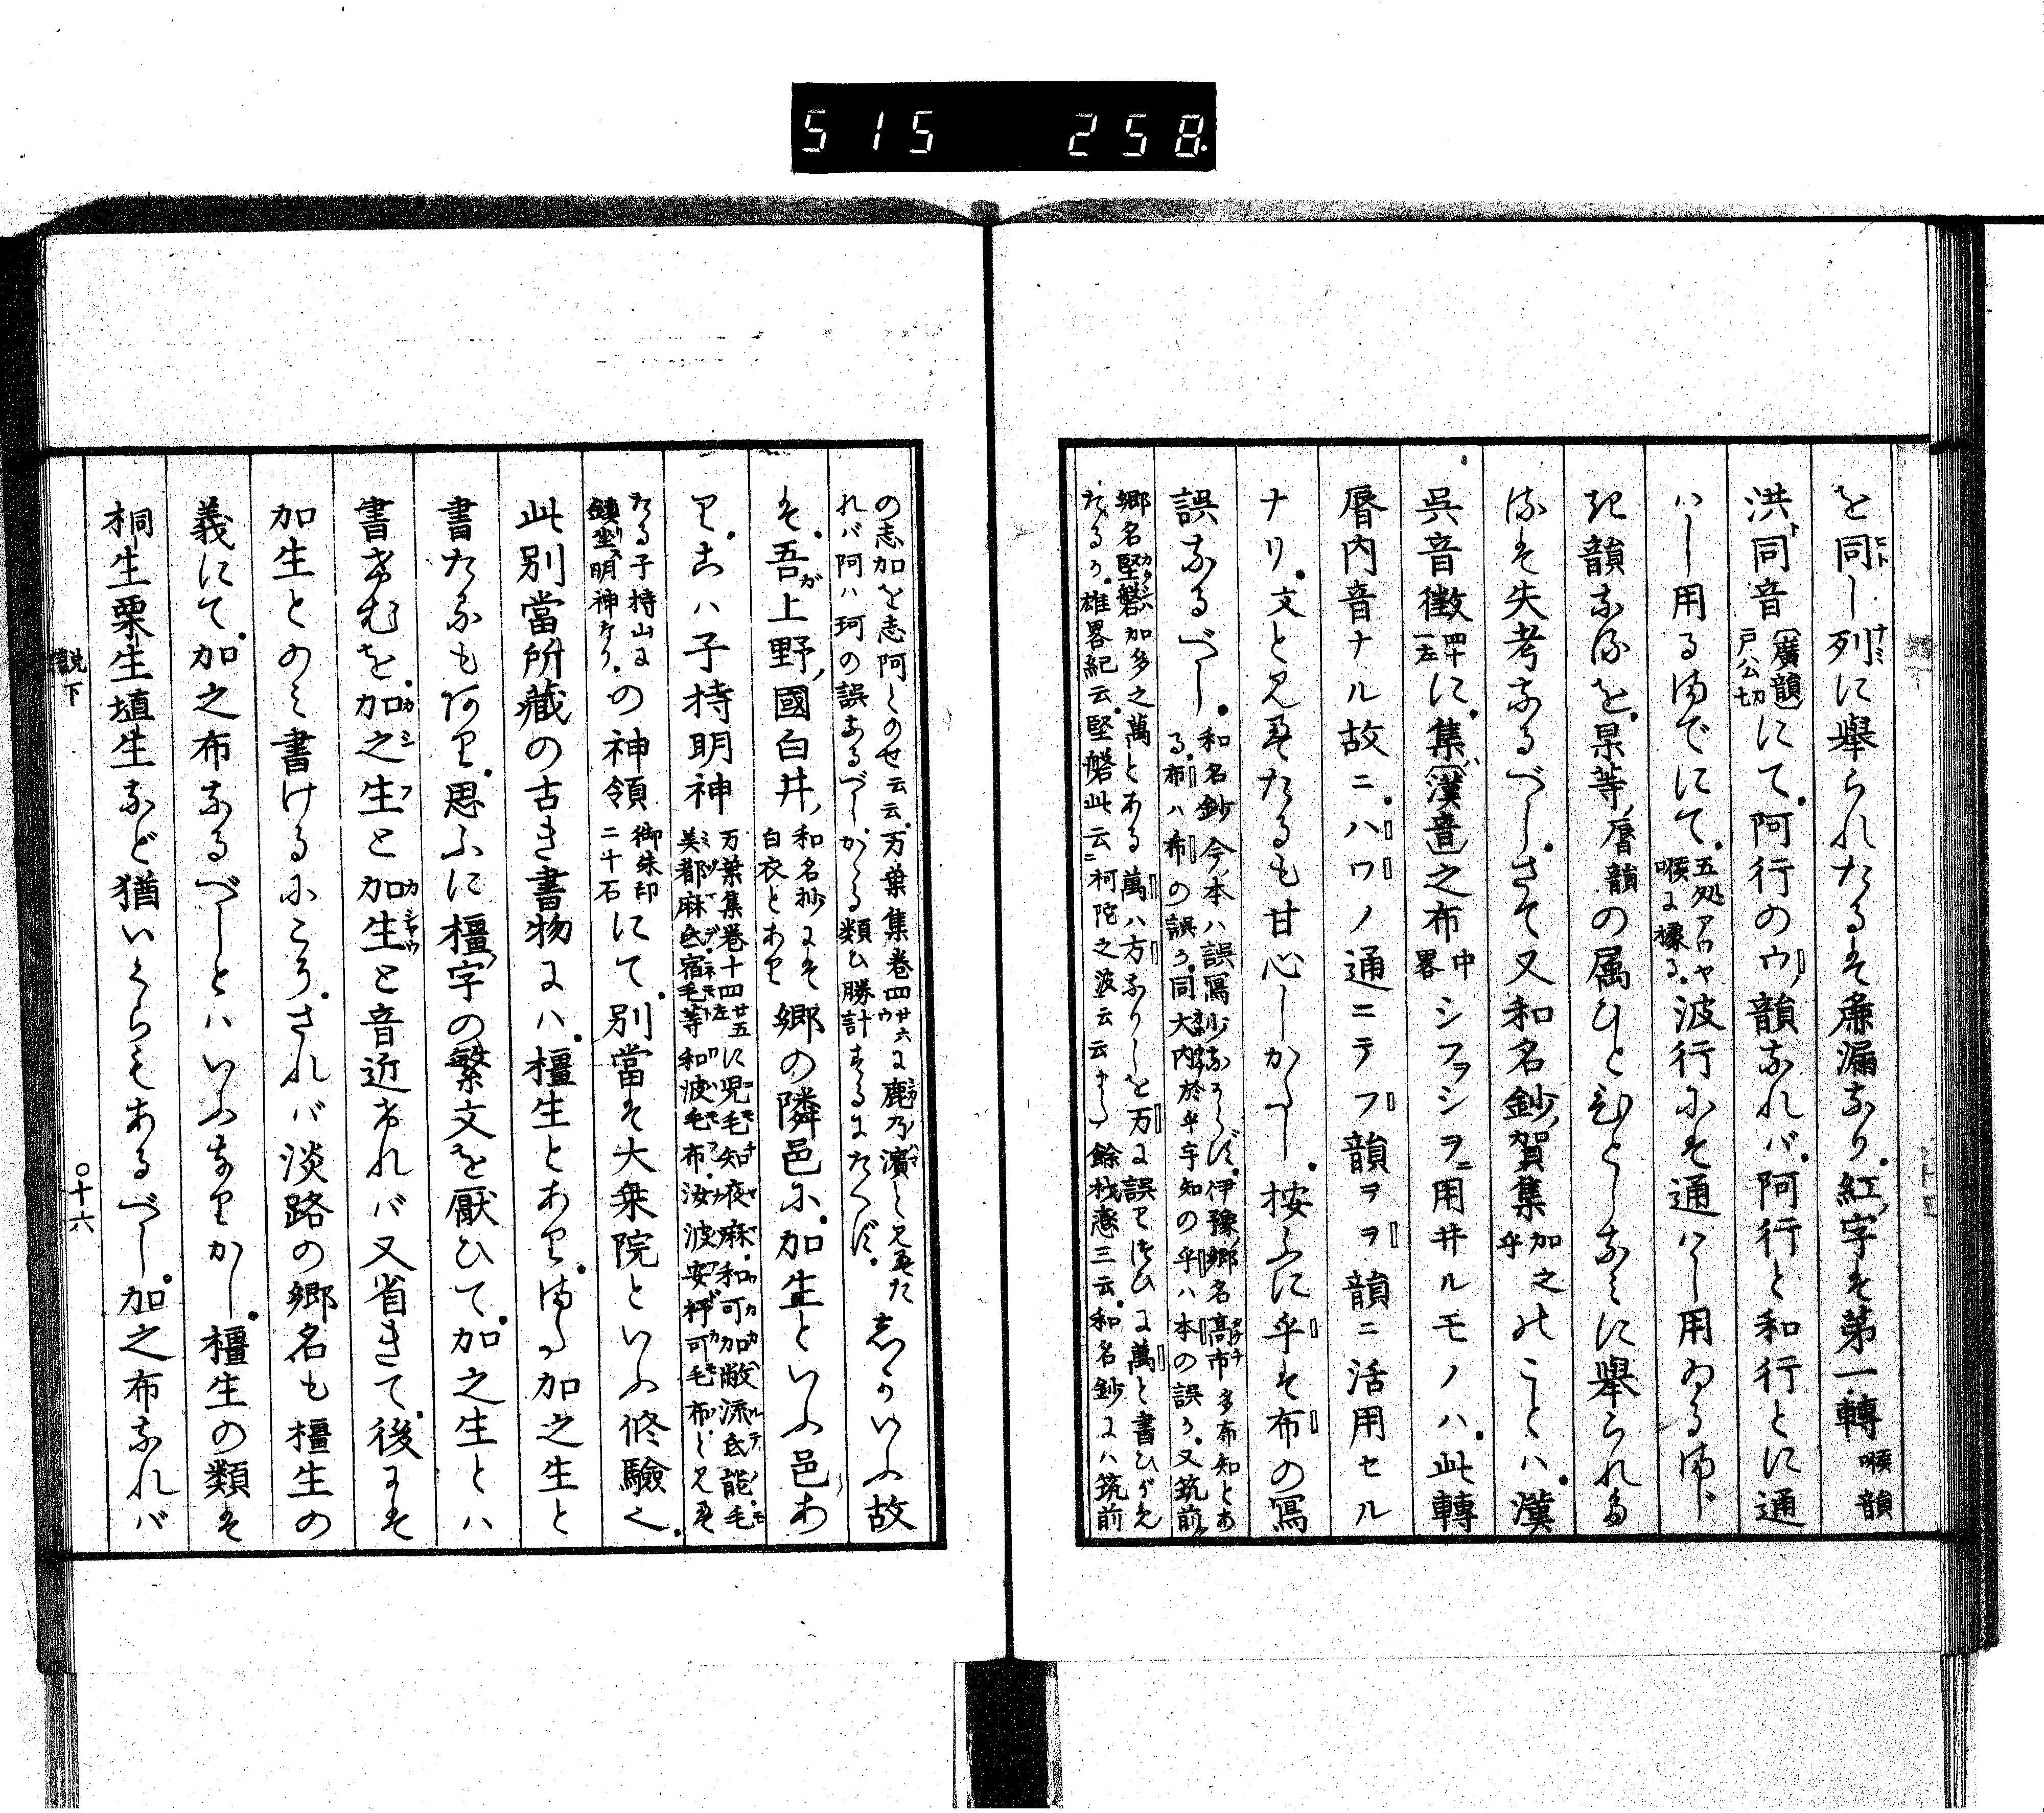 515 258
を同じ列に擧られたるは麁漏なり。紅字は第一轉喉韻
洪同音廣韻戸公切にて。阿行のウ韻なれバ。阿行と和行とに通
ハし用るまでにて。五処アワヤ喉に據る。波行には通ハし用ゐるまじ
き韻なるを。杲等唇韻の属ひとひとしなみに擧られたる
は失考なるべし。さて又和名鈔賀集加之乎のことハ。漢
呉音徴四十一左に。集漢音之布中畧シフヲシヲニ用井ルモノハ。此轉
唇内音ナル故ニ。ハワノ通ニテフ韻ヲヲ韻ニ活用セル
ナリ。文と見えたるも甘心しがたし。按ふに乎は布の寫
誤なるべし。和名鈔今本ハ誤寫少なからず。伊豫郷名高市多布知とあ
る。布ハ希の誤か。同大内於乎宇知の乎ハ本の誤か。又筑前
郷名堅磐加多之萬とある萬ハ方なりしを万に誤りつひに萬と書ひがめ
たるか。雄畧紀云。堅磐此云柯陀之波云云また餘材抄三云。和名鈔にハ筑前
の志加を志阿とのせ云云。万葉集巻四廿六ウに鹿乃濱と見えた
れバ阿ハ珂の誤なるべし。かゝる類ひ勝計するにたへず。しかいふ故
は。吾が上野國白井和名抄には白衣とあり郷の隣邑に。加生といふ邑あ
り。こハ子持明神万葉集巻十四廿五左に児毛知夜麻。和可加敝流氐能。毛
美都麻氐宿毛等和波毛布。汝波安杼可毛布と見え
たる子持山に鎮坐明神なり。の神領御朱印二十石にて。別當は大乗院といふ修驗也。
此別當所藏の古き書物にハ。橿生とあり。また加之生と
書たるもあり。思ふに橿字の繁文を厭ひて。加之生とハ
書けむを。加之生と加生と音近けれバ又省きて。後には
加生とのミ書けるにこそ。されバ淡路の郷名も橿生の
義にて。加之布なるべしとハいふなりかし。橿生の類は
桐生栗生埴生など猶いくらもあるべし。加之布なれバ
説下
○十六